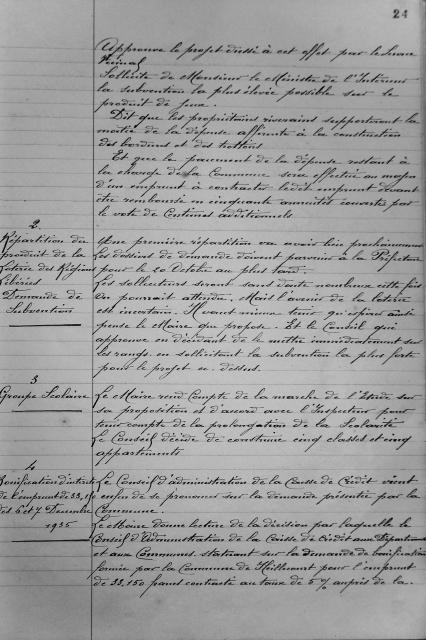 24
Approuve le projet dressé à cet effet par le Service
Vicinal
Sollicite de Monsieur le Ministre de l'Intérieur
la subvention la plus élevée possible sur le
produit de jeux.
Dit que les propriétaires riverains supporteront la
moitié de la dépense afférente à la construction
des bordures et des trottoirs
Et que le paiement de la dépense restant à
la charge de la Commune sera effectué au moyen
d'un emprunt à contracter ledit emprunt devant
être remboursé en cinquante annuités couvertes par
le vote de Centimes additionnels.
2
Répartition du
produit de la
Loterie des Régions
libérées
Demande de
Subvention
Une première répartition va avoir lieu prochainement
Les dossiers de demande doivent parvenir à la Préfecture
pour le 20 Octobre au plus tard.
Les solliciteurs seront sans doute nombreux cette fois
On pourrait attendre. Mais l'avenir de la loterie
est incertain. Il vaut mieux tenir qu'espérer ainsi
pense le Maire qui propose. Et le Conseil qui
approuve en décidant de se mettre immédiatement sur
les rangs en sollicitant la subvention la plus forte
pour le projet ci-dessus.
3
Groupe Scolaire
Le Maire rend Compte de la marche de l'Etude sur
sa proposition et d'accord avec l'Inspecteur pour
tenir compte de la prolongation de la Scolarité
Le Conseil décide de construire cinq classes et cinq
appartements
4
Bonification d'intérêt
de l'emprunt de 33,150
des 6 et 7 Décembre
1935
Le Conseil d'administration de la Caisse de Crédit vient
enfin de se prononcer sur la demande présentée par la
Commune.
Le Maire donne lecture de la décision par laquelle le
Conseil d'Administration de la Caisse de Crédit aux Départements
et aux Communes statuant sur la demande de bonification
formée par la Commune de pour l'emprunt
de 33,150 francs contracté au taux de 6% auprès de la